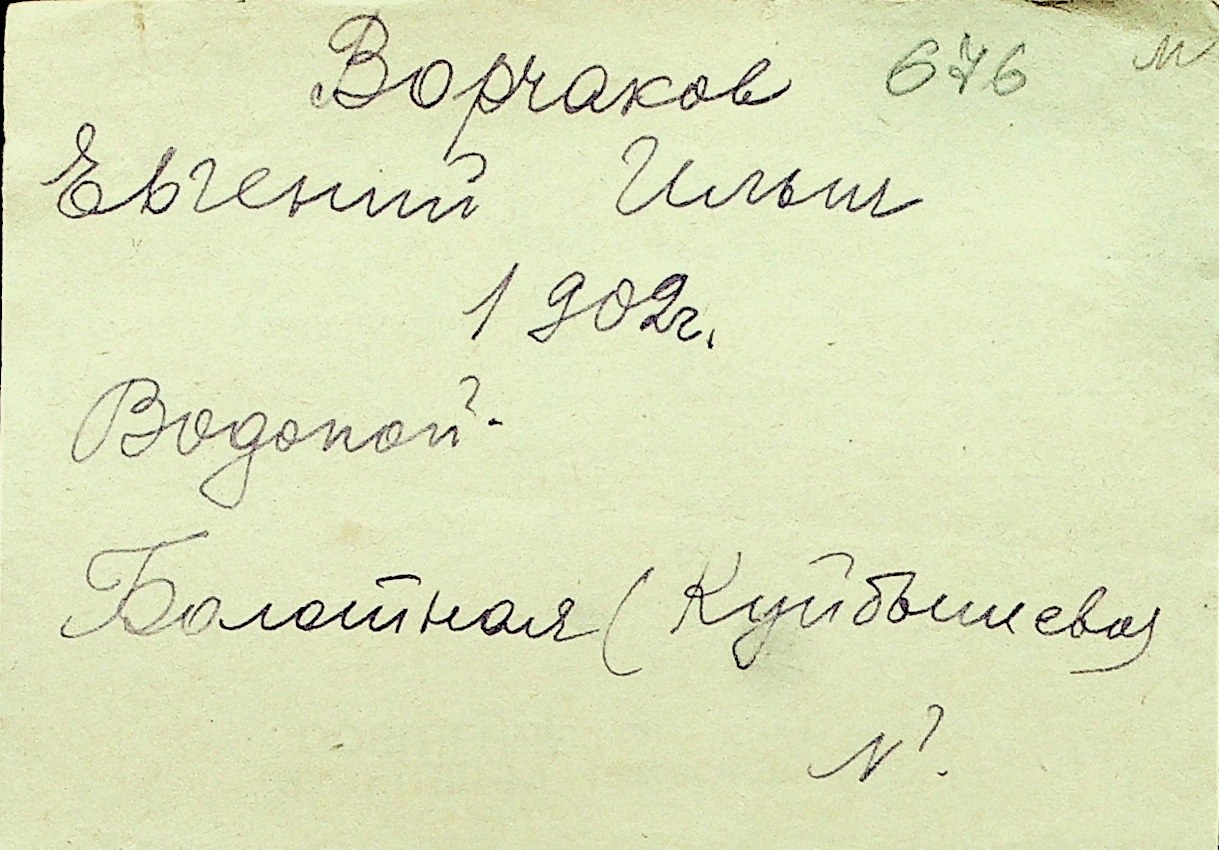 Ворчаков 676 м
Евгений Ильич
1902г.
Водопой.
Болотная (Куйбышева)
№?